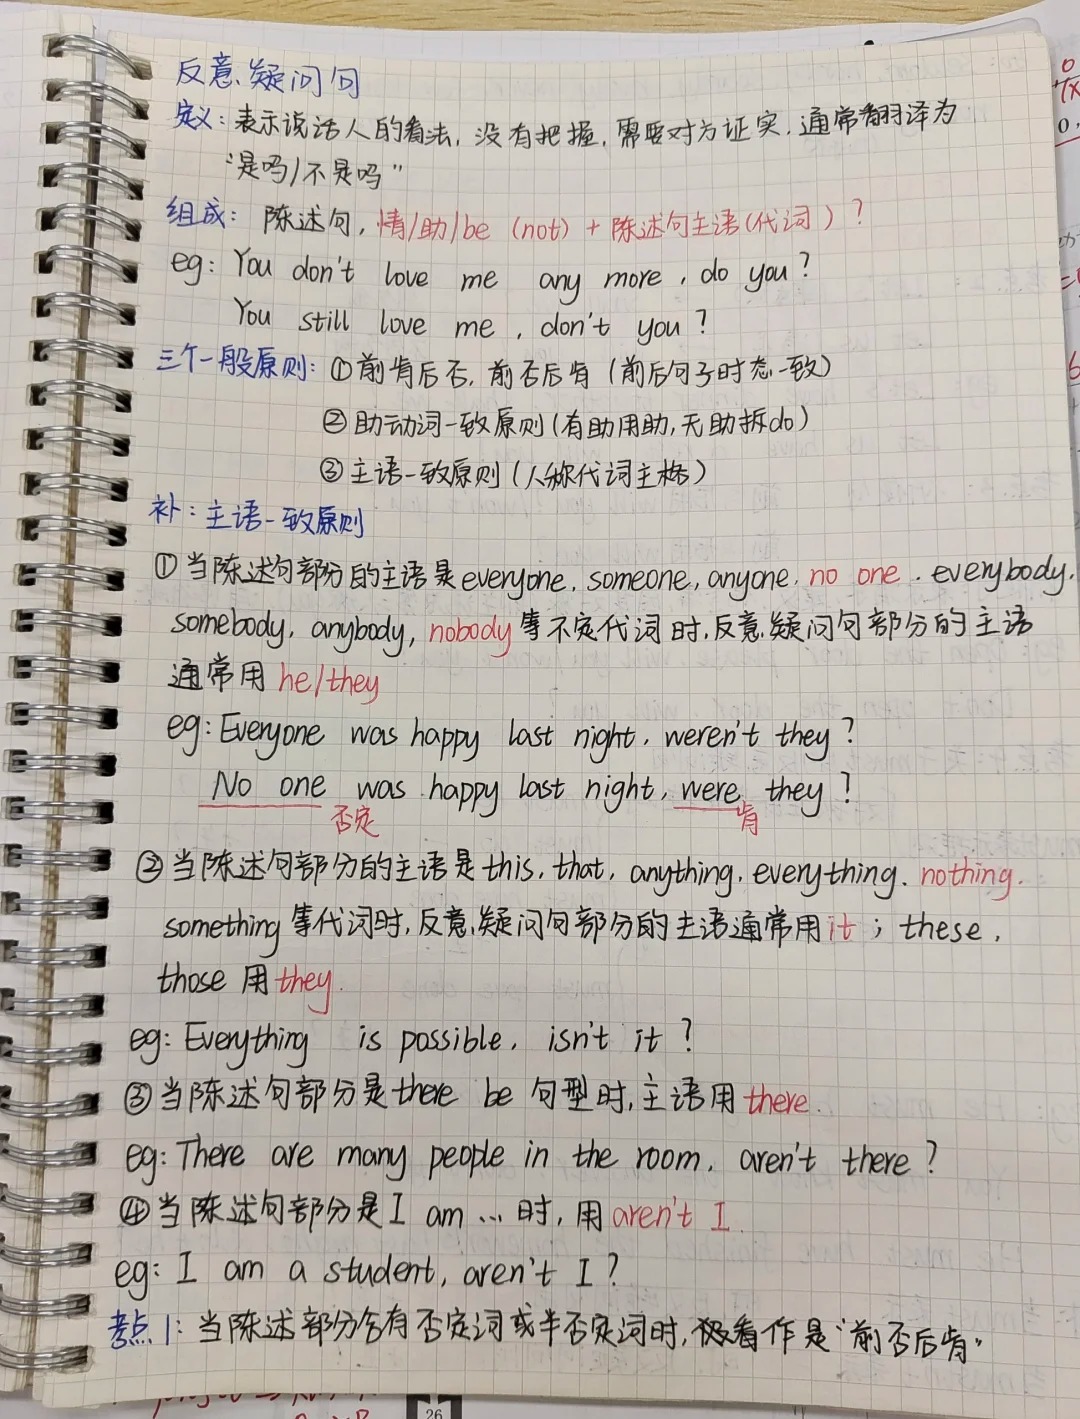 反意疑问句
定义：表示说话人的看法，没有把握，需要对方证实，通常翻译为
“是吗/不是吗”
组成：陈述句，情/助/be (not) + 陈述句主语(代词)？
eg: You don't love me any more, do you?
You still love me, don't you?
三个一般原则：①前肯后否，前否后肯（前后句子时态一致）
②助动词一致原则(有助用助，无助拆do)
③主语一致原则（人称代词主格）
补：主语一致原则
①当陈述句部分的主语是everyone, someone, anyone, no one, everybody,
somebody, anybody, nobody等不定代词时，反意疑问句部分的主语
通常用 he/they
eg: Everyone was happy last night, weren't they?
No one was happy last night, were they?
否定 肯
②当陈述句部分的主语是this, that, anything, everything, nothing,
something等代词时，反意疑问句部分的主语通常用it；these,
those用they.
eg: Everything is possible, isn't it?
③当陈述句部分是there be 句型时，主语用there.
eg: There are many people in the room, aren't there?
④当陈述句部分是I am ... 时，用aren't I.
eg: I am a student, aren't I?
考点1：当陈述部分含有否定词或半否定词时，被看作是“前否后肯”
26